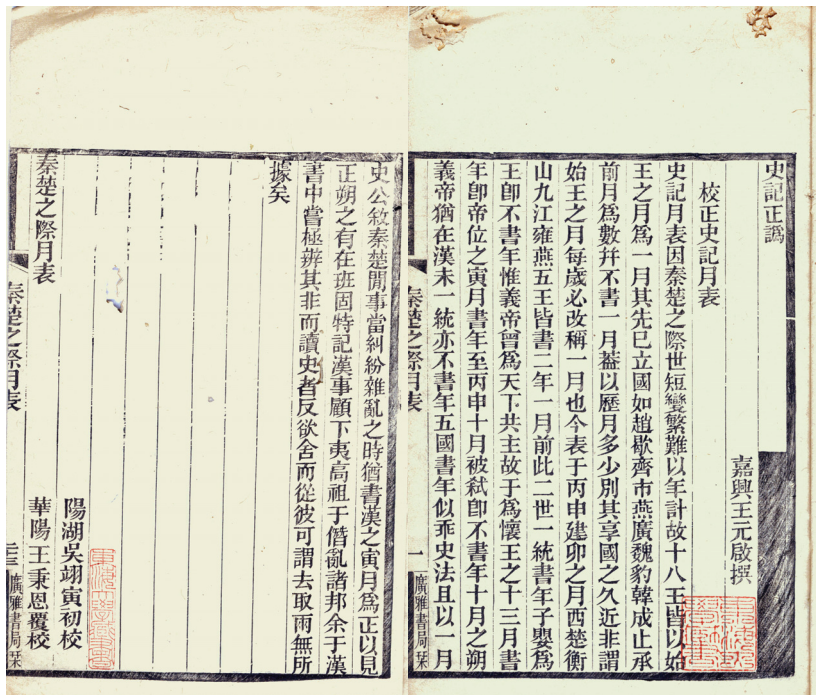 史記正譌
嘉興王元啟撰
校正史記月表
史記月表因秦楚之際世短變繁難以年計故十八王皆以始
王之月爲一月其先已立國如趙歇齊巿燕廣魏豹韓成止承
前月爲數幷不書一月葢以歷月多少別其享國之久近非謂
始王之月每歲必改稱一月也今表于丙申建卯之月西楚衡
山九江雍燕五王皆書二年一月前此二世一統書年子嬰爲
王卽不書年惟義帝曾爲天下共主故于爲懷王之十三月書
年卽帝位之寅月書年至丙申十月被弑卽不書年十月之朔
義帝猶在漢未一統亦不書年五國書年似乖史法且以一月
秦楚之際月表
一
廣雅書局栞
史公敘秦楚閒事當糾紛雜亂之時猶書漢之寅月爲正以見
正朔之有在班固特記漢事顧下夷高祖于僭亂諸邦余于漢
書中嘗極辨其非而讀史者反欲舍而從彼可謂去取兩無所
據矣
陽湖吳翊寅初校
秦楚之際月表
華陽王秉恩覆校
秦楚之際月表
廣雅書局栞